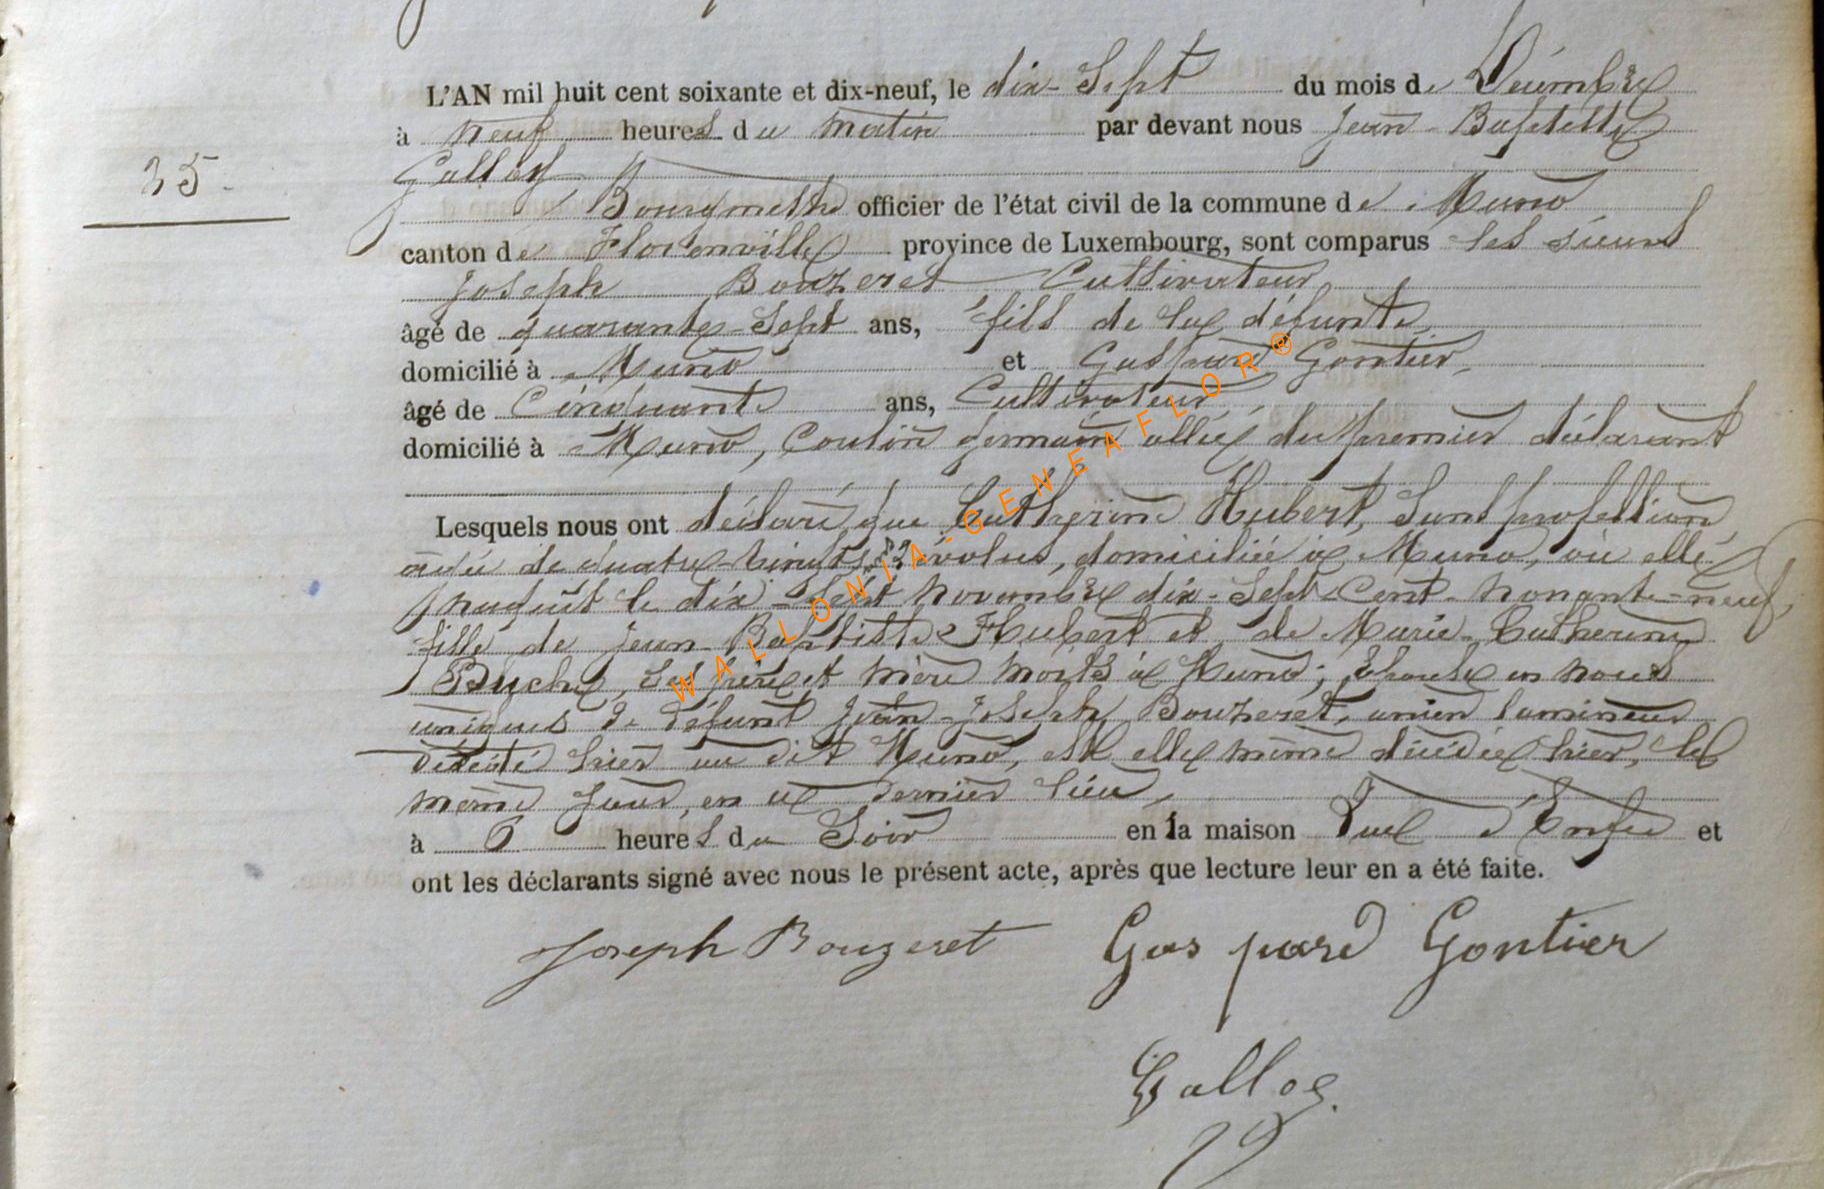 L'AN mil huit cent soixante et dix-neuf, le dix-Sept du mois de Décembre
à neuf heures du matin par devant nous Jean-Baptiste
35.
Galloy
Bourgmestre officier de l'état civil de la commune de Muno
canton de Florenville province de Luxembourg, sont comparus les sieurs
Joseph Bouzeret Cultivateur
âgé de quarante-Sept ans, fils de la défunte,
domicilié à Muno et Gaspard Gontier,
âgé de Cinquante ans, Cultivateur
domicilié à Muno, Cousin germain allié du premier déclarant
Lesquels nous ont déclaré que Catherine Hubert, Sans profession
âgée de quatre-vingts ans évolus, domiciliée à Muno, où elle
naquit le dix-Sept novembre dix-Sept-Cent-nonante-neuf,
fille de Jean-Baptiste Hubert et de Marie-Catherine
Buche, Ses père et mère morts à Muno; Epouse en noces
uniques de défunt Jean-Joseph Bouzeret, ancien
décédé hier au dit Muno, est elle même décédée hier, le
même jour, en ce dernier lieu,
à 6 heures du Soir en la maison Rue d'Enfer et
ont les déclarants signé avec nous le présent acte, après que lecture leur en a été faite.
Joseph Bouzeret Gaspard Gontier
Galloy
WALLONIA-GENEAFLOR®